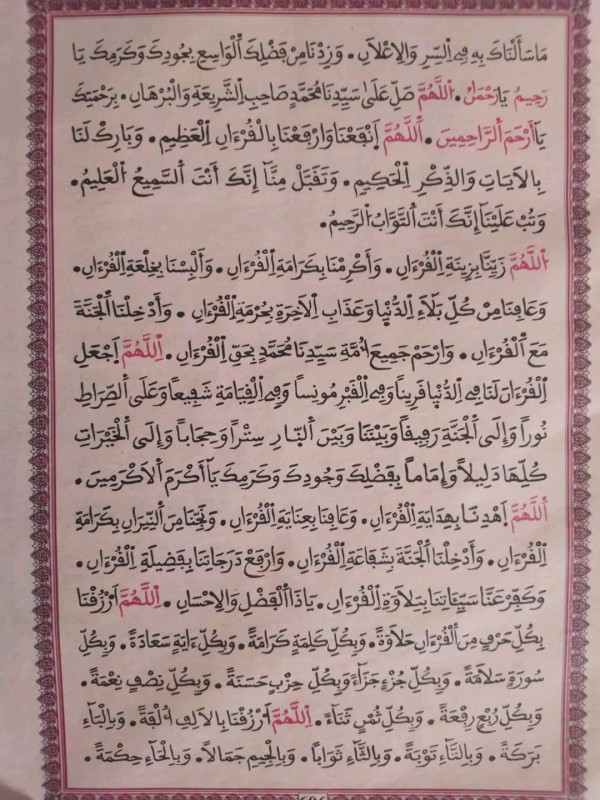 مَا سَأَلْنَاكَ بِهِ فِي السِّرِّ وَالِاعْلَانِ ۰ وَزِدْنَا مِنْ فَضْلِكَ الْوَاسِعِ بِجُودِكَ وَكَرَمِكَ يَا
رَحِيمُ يَا رَحْمَٰنُ ۰ اَللَّهُمَّ صَلِّ عَلَىٰ سَيِّدِنَا مُحَمَّدٍ صَاحِبِ الشَّرِيعَةِ وَالْبُرْهَانِ ۰ بِرَحْمَتِكَ
يَا أَرْحَمَ الرَّاحِمِينَ ۰ اَللَّهُمَّ اَنْفَعْنَا وَارْفَعْنَا بِالْقُرْءَانِ الْعَظِيمِ ۰ وَبَارِكْ لَنَا
بِالآيَاتِ وَالذِّكْرِ الْحَكِيمِ ۰ وَتَقَبَّلْ مِنَّا إِنَّكَ أَنْتَ السَّمِيعُ الْعَلِيمُ ۰
وَتُبْ عَلَيْنَا إِنَّكَ أَنْتَ التَّوَّابُ الرَّحِيمُ ۰
اَللَّهُمَّ زَيِّنَّا بِزِينَةِ الْقُرْءَانِ ۰ وَأَكْرِمْنَا بِكَرَامَةِ الْقُرْءَانِ ۰ وَأَلْبِسْنَا بِخِلْعَةِ الْقُرْءَانِ ۰
وَعَافِنَا مِنْ كُلِّ بَلَاءِ الدُّنْيَا وَعَذَابِ الَاخِرَةِ بِحُرْمَةِ الْقُرْءَانِ ۰ وَأَدْخِلْنَا الْجَنَّةَ
مَعَ الْقُرْءَانِ ۰ وَارْحَمْ جَمِيعَ أُمَّةِ سَيِّدِنَا مُحَمَّدٍ بِحَقِّ الْقُرْءَانِ ۰ اَللَّهُمَّ اَجْعَلِ
الْقُرْءَانَ لَنَا فِي الدُّنْيَا قَرِيناً وَفِي الْقَبْرِ مُونِساً وَفِي الْقِيَامَةِ شَفِيعاً وَعَلَى الصِّرَاطِ
نُوراً وَإِلَى الْجَنَّةِ رَفِيقاً وَبَيْنَنَا وَبَيْنَ النَّارِ سِتْراً وَحِجَاباً وَإِلَى الْخَيْرَاتِ
كُلِّهَا دَلِيلاً وَإِمَاماً بِفَضْلِكَ وَجُودِكَ وَكَرَمِكَ يَا أَكْرَمَ الَاكْرَمِينَ ۰
اَللَّهُمَّ اَهْدِنَا بِهِدَايَةِ الْقُرْءَانِ ۰ وَعَافِنَا بِعِنَايَةِ الْقُرْءَانِ ۰ وَنَجِّنَا مِنَ النِّيرَانِ بِكَرَامَةِ
الْقُرْءَانِ ۰ وَأَدْخِلْنَا الْجَنَّةَ بِشَفَاعَةِ الْقُرْءَانِ ۰ وَارْفَعْ دَرَجَاتِنَا بِفَضِيلَةِ الْقُرْءَانِ ۰
وَكَفِّرْ عَنَّا سَيِّئَاتِنَا بِتِلَاوَةِ الْقُرْءَانِ ۰ يَا ذَا الْفَضْلِ وَالِاحْسَانِ ۰ اَللَّهُمَّ اَرْزُقْنَا
بِكُلِّ حَرْفٍ مِنَ الْقُرْءَانِ حَلَاوَةً ۰ وَبِكُلِّ كَلِمَةٍ كَرَامَةً ۰ وَبِكُلِّ ءَايَةٍ سَعَادَةً ۰ وَبِكُلِّ
سُورَةٍ سَلَامَةً ۰ وَبِكُلِّ جُزْءٍ جَزَاءً وَبِكُلِّ حِزْبٍ حَسَنَةً ۰ وَبِكُلِّ نِصْفٍ نِعْمَةً ۰
وَبِكُلِّ رُبْعٍ رِفْعَةً ۰ وَبِكُلِّ ثُمْنٍ ثَنَاءً ۰ اَللَّهُمَّ اَرْزُقْنَا بِالَالِفِ اُلْفَةً ۰ وَبِالْبَاءِ
بَرَكَةً ۰ وَبِالتَّاءِ تَوْبَةً ۰ وَبِالثَّاءِ ثَوَاباً ۰ وَبِالْجِيمِ جَمَالاً ۰ وَبِالْحَاءِ حِكْمَةً ۰